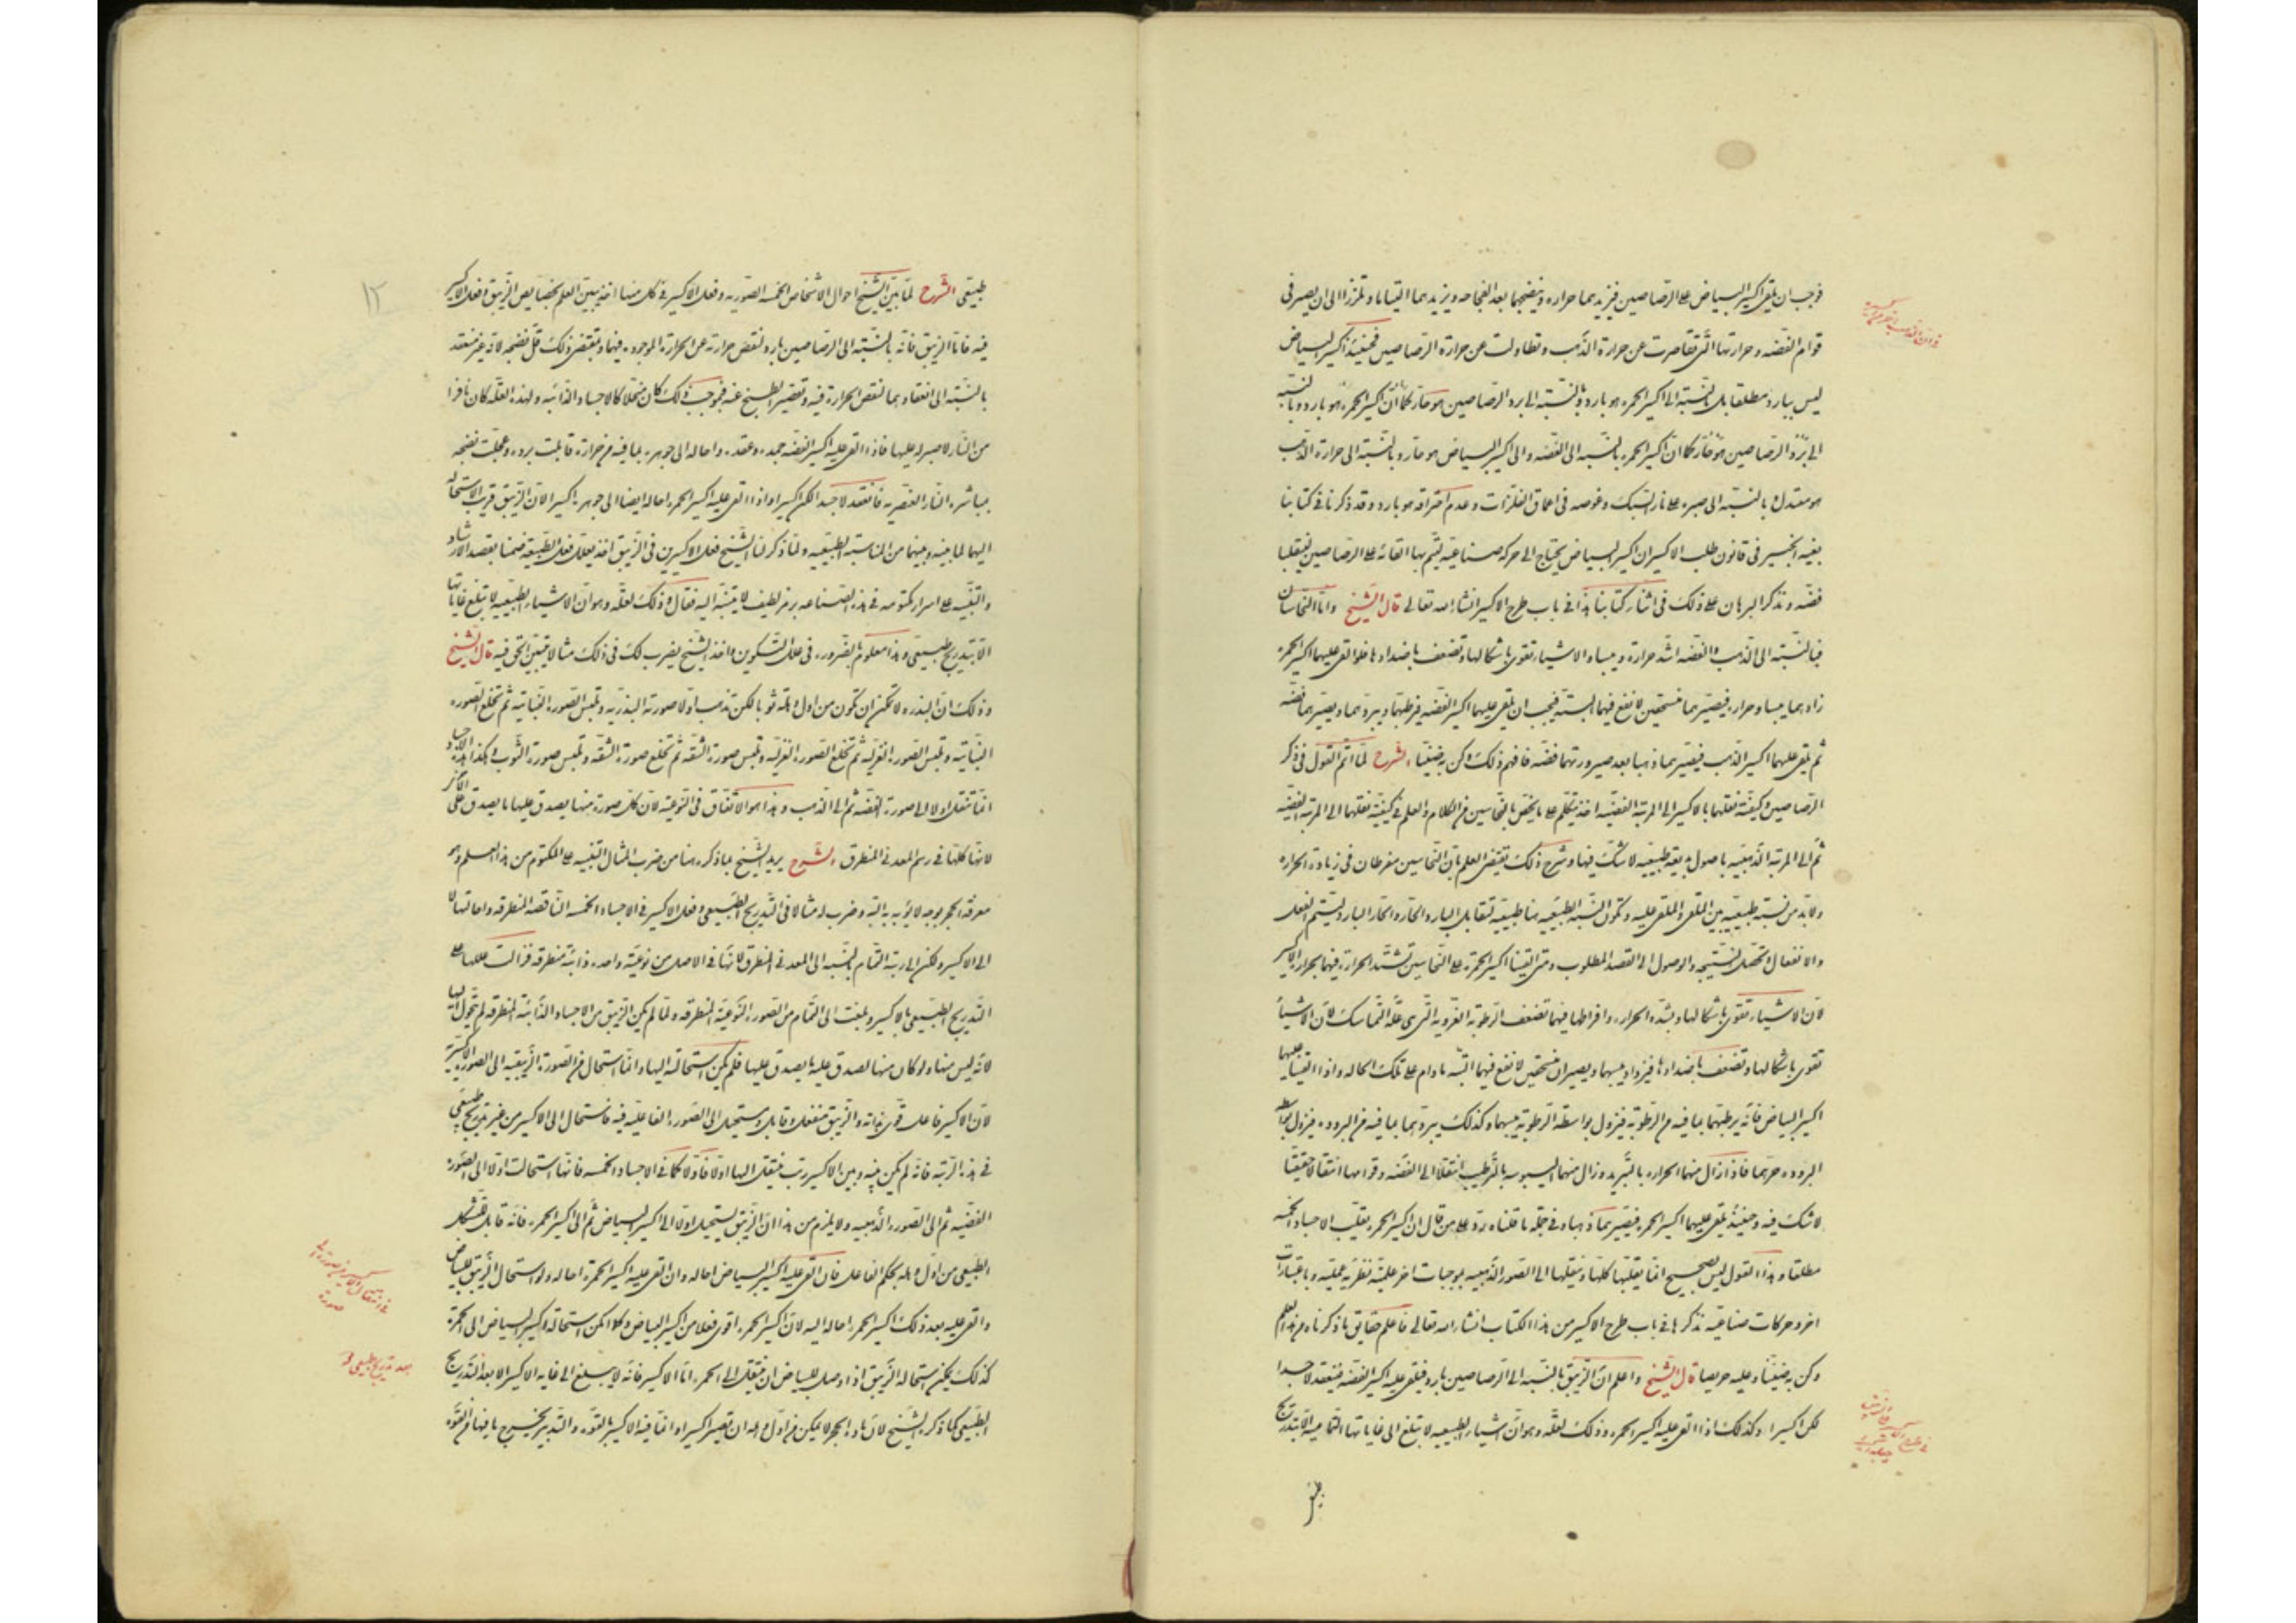 فوجب ان يلقى اكسير البياض على الرصاصين فيزيدهما حرارة وينضجهما بعد الفجاجه ويزيدهما التيانا وتلززا الى ان يصير فى
قوام الفضه وحرارتها التى تقاصرت عن حرارة الذهب وتطاولت عن حرارة الرصاصين فحينئذ اكسير البياض
ليس ببارد مطلقا بل بالنسبته الى اكسير الحمره هو بارد وبالنسبته الى برد الرصاصين هو حار كما ان اكسير الحمره هو بارد وبالنسبته
الى برد الرصاصين هو حار كما ان اكسير الحمره بالنسبه الى الفضه والى اكسير البياض هو حار وبالنسبته الى حرارة الذهب
هو معتدل وبالنسبته الى صبره على نار السبك وغوصه فى اعماق الفلزات وعدم احتراقه هو بارد وقد ذكرنا فى كتابنا
بغيه الخبير فى قانون طلب الاكسير ان اكسير البياض يحتاج الى حركه صناعيه ليتم بها القائه على الرصاصين لينقلبا
فضه ونذكر البرهان على ذلك فى اثناء كتابنا هذا فى باب طرح الاكسير انشاء الله تعالى قال الشيخ واما النحاسان
فبالنسبته الى الذهب والفضه اشد حرارة ويبسا والاشياء تقوى باشكالها وتضعف باضدادها فلو القى عليهما اكسير الحمره
زادهما يبسا وحرارة فيصيرهما منسحقين لا نفع فيهما البتته فيجب ان يلقى عليهما اكسير الفضه فيرطبهما ويبردهما ويصيرهما فضه
ثم يلقى عليهما اكسير الذهب فيصيرهما ذهبا بعد صيرورتهما فضه فافهم ذلك وكن به ضنينا الشرح لما اتم القول فى ذكر
الرصاصين وكيفيته نقلهما بالاكسير الى المرتبه الفضيه اخذ يتكلم على ما يختص بالنحاسين من الكلام والعلم فى كيفيته نقلهما الى المرتبه الفضيه
ثم الى المرتبه الذهبيه باصول بديعه طبيعيه لا شك فيها وشرح ذلك يقتضى العلم بان النحاسين مفرطان فى زيادة الحراره
ولابد من نسبته طبيعيه بين الملقى والملقى عليه وتكون النسبه الطبيعيه هنا طبيعيه تقابل البارد والحار والحار البارد ليتم الفعل
والانفعال وتحصل النتيجه والوصول الى القصد المطلوب ومتى القينا اكسير الحمره على النحاسين تشتد الحرارة فيهما بحرارة الاكسير
لان الاشياء تقوى باشكالها وبشدة الحراره وافراطها فيهما تضعف الرطوبه الغرويه التى هى علة التماسك لان الاشياء
تقوى باشكالها وتضعف باضدادها فيزداد يبسهما ويصيران منسحقين لا نفع فيهما البته ما دام على تلك الحاله واذا القينا عليهما
اكسير البياض فانه يرطبهما بما فيه من الرطوبه فيزول بواسطه الرطوبه يبسهما وكذلك يبردهما بما فيه من البروده فيزول بواسطه
البروده حرهما فاذا زال منهما الحراره بالتبريد وزال منهما اليبوسه بالترطيب انتقلا الى الفضه وقوامها انتقالا حقيقيا
لا شك فيه وحينئذ يلقى عليهما اكسير الحمره فيصيرهما ذهبا وفى جملة ما قلناه رد على من قال ان اكسير الحمره يقلب الاجساد الخمسه
مطلقا وهذا القول ليس بصحيح انما يقلبها كلها وينقلها الى الصور الذهبيه بموجبات اخر علميه نظريه عمليه وباعتبارات
اخر وحركات صناعيه نذكرها فى باب طرح الاكسير من هذا الكتاب انشاء الله تعالى فاعلم حقايق ما ذكرناه من هذا العلم
وكن به ضنينا وعليه حريصا قال الشيخ واعلم ان الزيبق بالنسبه الى الرصاصين بارد فيلقى عليه اكسير الفضه فينعقد لا جسدا
لكن اكسيرا وكذلك اذا القى عليه اكسير الحمره وذلك لعله وهو ان الاشياء الطبيعيه لا تبلغ الى غاياتها التماميه الا بتدريج
طبيعى
١٢
طبيعى الشرح لما بين الشيخ احوال الاشخاص الخمسه الصوريه وفعل الاكسير فى كل منها اخذ يبين العلم بخصايص الزيبق وفعل الاكسير
فيه فاما الزيبق فانه بالنسبته الى الرصاصين بارد لنقص حرارته عن الحرارة الموجوده فيهما وبمقتضى ذلك قل نضجه لانه غير منعقد
بالنسبته الى انعقادهما لنقص الحرارة فيه وتقصير الطبخ عنه فبموجب ذلك كان منحلا كالاجساد الذائبه ولهذه العله كان نافرا
من النار لا صبر له عليها فاذا القى عليه اكسير الفضه جمده وعقده واحاله الى جوهره بما فيه من حرارة قابلت برده وعجلت نضجه
بمباشره النار العنصريه فانعقد لا جسدا لكن اكسيرا واذا القى عليه اكسير الحمره احاله ايضا الى جوهره اكسيرا لان الزيبق قريب الاستحاله
اليهما لما بينه وبينهما من المناسبه الطبيعيه ولما ذكر لنا الشيخ فعل الاكسيرين فى الزيبق اخذ يعلل فعل الطبيعه ضمنا بقصد الارشاد
والتنبيه على اسرار مكتومه فى هذه الصناعه برمز لطيف لا يتنبه اليه فقال وذلك لعله وهو ان الاشياء الطبيعيه لا تبلغ غاياتها
الا بتدريج طبيعى وهذا معلوم بالضروره فى علل التكوين واخذ الشيخ يضرب لك فى ذلك مثالا يتبين الحق فيه قال الشيخ
وذلك ان البذره لا تمكن ان تكون من اول وهلة ثوبا لكن تذهب اولا صورته البذريه وتلبس الصوره النباتيه ثم تخلع الصوره
النباتيه وتلبس الصوره الغزليه ثم تخلع الصوره الغزليه وتلبس صورة الشقه ثم تخلع صورة الشقه وتلبس صورة الثوب وهكذا هذه الاجساد
انما تنتقل اولا الى صورة الفضه ثم الى الذهب وهذا هو الاتفاق فى النوعيه لان كل صورة منها يصدق عليها ما يصدق على الاخر
لانها كلها فى رسم المعدنى المنطرق الشرح يريد الشيخ بما ذكره هنا من ضرب المثال التنبيه على المكتوم من هذا العلم وهو
معرفة الحجر بوجه لا يؤبه به البته وضرب له مثالا فى التدريج الطبيعى وفعل الاكسير فى الاجساد الخمسه الناقصه المنطرقه واحالتها لا
الى الاكسير ولكن الى رتبه التمام بالنسبه الى المعدنى المنطرق لانها فى الاصل من نوعيه واحده ذائبه منطرقه فزالت عللها على
التدريج الطبيعى بالاكسير وبلغت الى التمام من الصورة النوعيه المنطرقه ولما لم يكن الزيبق من الاجساد الذائبه المنطرقه لم يتحول اليها
لانه ليس منها ولو كان منها لصدق عليه ما يصدق عليها فلم يكن استحالته اليها وانما استحال من الصورة الزيبقيه الى الصوره الاكسيريه
لان الاكسير فاعل قوى بذاته والزيبق منفعل وقابل ويستحيل الى الصوره الفاعليه فيه فاستحال الى الاكسير من غير تدريج طبيعى
فى هذه الرتبه فانه لم يكن بينه وبين الاكسير رتب ينتقل اليها اولا فاولا كما فى الاجساد الخمسه فانها استحالت اولا الى الصوره
الفضيه ثم الى الصوره الذهبيه ولا يلزم من هذا ان الزيبق يستحيل اولا الى اكسير البياض ثم الى اكسير الحمره فانه قابل للتشكل
الطبيعى من اول وهله بحكم الفاعل فان القى عليه اكسير البياض احاله وان القى عليه اكسير الحمرة احاله ولو استحال الزيبق للبياض
والقى عليه بعد ذلك اكسير الحمره احاله اليه لان اكسير الحمره اقوى فعلا من اكسير البياض وكما امكن استحالة اكسير البياض الى الحمره
كذلك يمكن استحالة الزيبق اذا وصل للبياض ان ينتقل الى الحمره اما الاكسير فانه لا يبلغ الى غايه الاكسير الا بعد التدريج
الطبيعى كما ذكره الشيخ لان مادة الحجر لا يمكن من اول وهله ان تصير اكسيرا وانما فيه الاكسير بالقوه والتدبير يخرج ما فيها من القوه